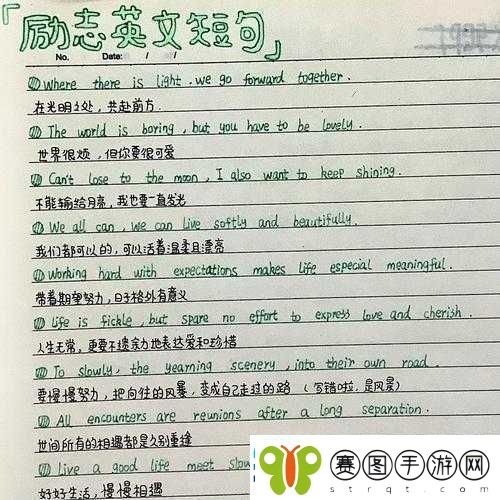 「励志英文短句」
No. Date: / /
Where there is light. we go forward together.
在光明之处，共赴前方.
The world is boring, but you have to be lovely.
世界很烦，但你要很可爱
Can't lose to the moon, I also want to keep shining.
不能输给月亮，我也要一直发光
We all can, we can live softly and beautifully.
我们都可以的，可以活着温柔且漂亮
Working hard with expectations makes life especial meaningful.
带着期望努力，日子格外有意义
Life is fickle, but spare no effort to express love and cherish.
人生无常，更要不遗余力地表达爱和珍惜
To slowly, the yearning scenery, into their own road.
要慢慢努力，把向往的风暴，变成自己走过的路（写错啦，是风景）
All encounters are reunions after a long separation.
世间所有的相遇都是久别重逢
Live a good life meet slow
好好生活，慢慢相遇
赛图手游网
strqt.com